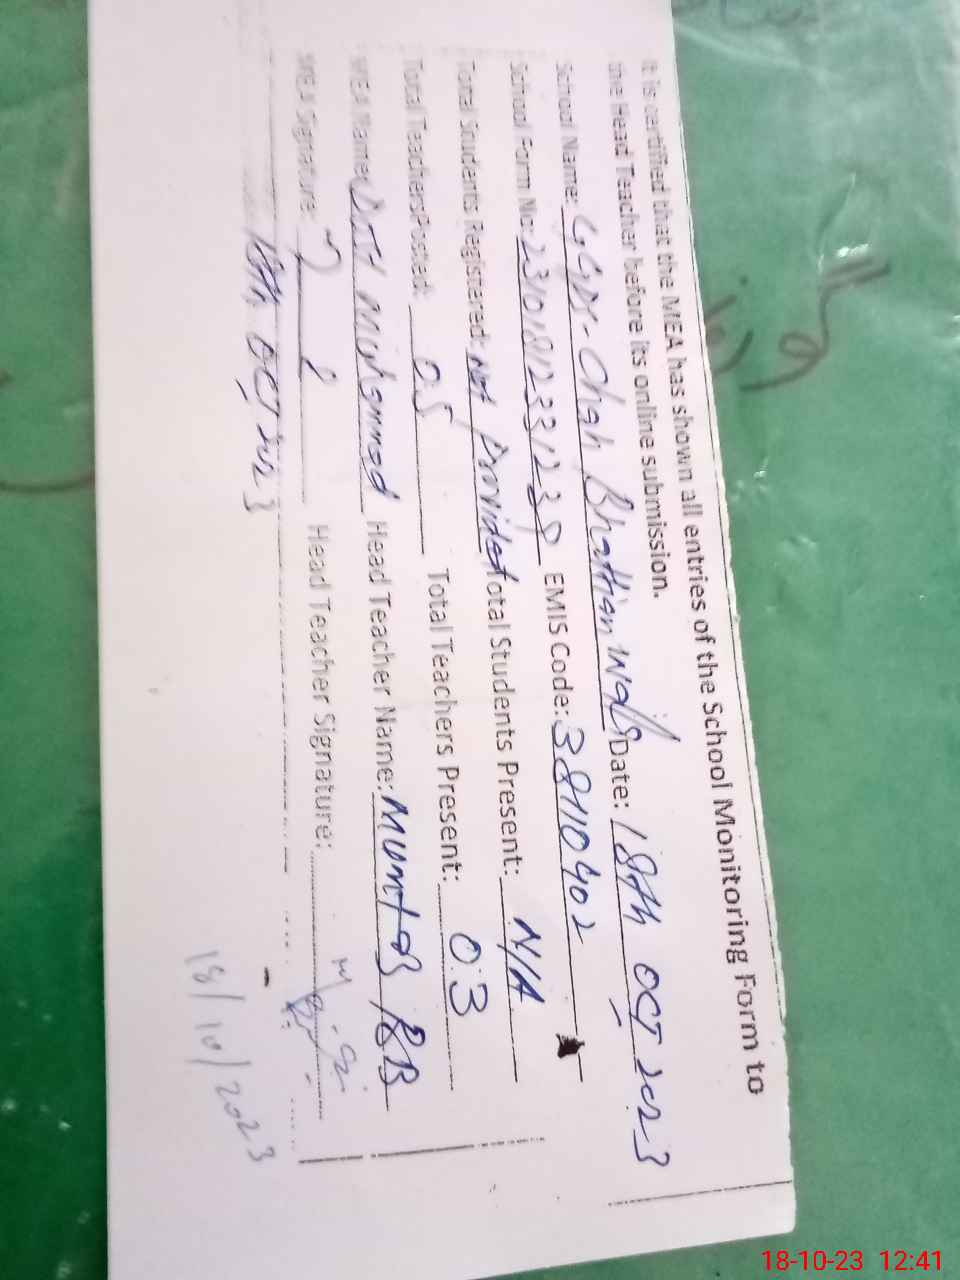 It is certified that the MEA has shown all entries of the School Monitoring Form to
the Head Teacher before its online submission.
School Name: Chah Bhattian wala Date: 18th OCT 2023
School Form No: EMIS Code: 38110402
Total Students Registered: not Provided Total Students Present: N/A
Total Teachers Posted: 05 Total Teachers Present: 03
MEA Name: Muhammad Head Teacher Name: Mumtaz BB
MEA Signature: Head Teacher Signature:
18th OCT 2023
18/10/2023
18-10-23 12:41